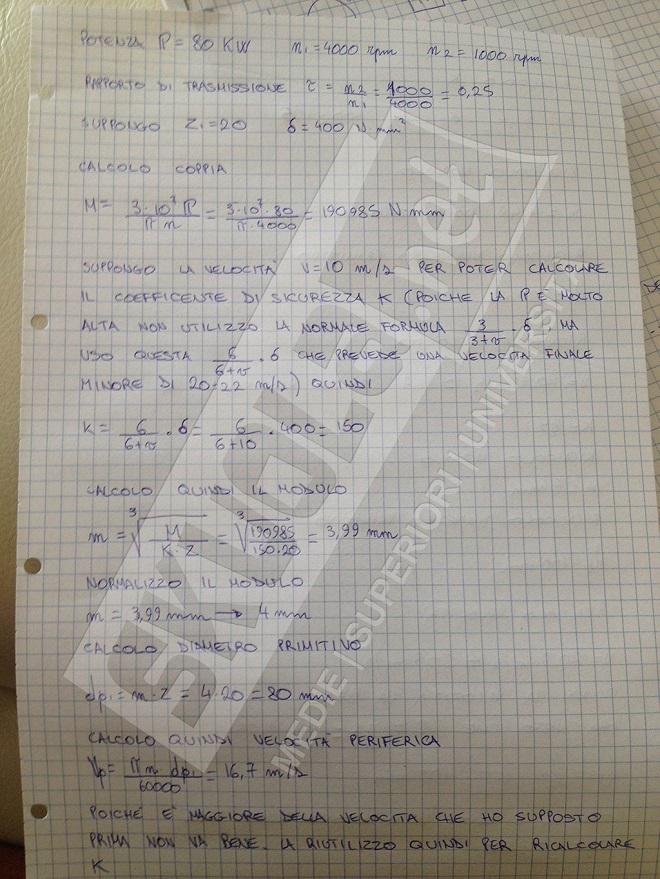 POTENZA P = 80 KW n1 = 4000 rpm n2 = 1000 rpm
RAPPORTO DI TRASMISSIONE τ = n2/n1 = 1000/4000 = 0,25
SUPPONGO Z1 = 20 σ = 400 N mm²
CALCOLO COPPIA
M = 3·10⁷ P/π n = 3·10⁷·80/π·4000 = 190985 N mm
SUPPONGO LA VELOCITA' V = 10 m/s PER POTER CALCOLARE
IL COEFFICENTE DI SICUREZZA K (POICHE LA P E MOLTO
ALTA NON UTILIZZO LA NORMALE FORMULA 3/3+v · σ MA
USO QUESTA 6/6+v · σ CHE PREVEDE UNA VELOCITA FINALE
MINORE DI 20-22 m/s) QUINDI
K = 6/6+v · σ = 6/6+10 · 400 = 150
CALCOLO QUINDI IL MODULO
m = ³√M/K·Z = ³√190985/150·20 = 3,99 mm
NORMALIZZO IL MODULO
m = 3,99 mm → 4 mm
CALCOLO DIAMETRO PRIMITIVO
dp1 = m·Z = 4·20 = 80 mm
CALCOLO QUINDI VELOCITA' PERIFERICA
Vp = π n dp1/60000 = 16,7 m/s
POICHE E' MAGGIORE DELLA VELOCITA CHE HO SUPPOSTO
PRIMA NON VA BENE. LA RIUTILIZZO QUINDI PER RICALCOLARE
K
SKUOLA.net
MEDIE | SUPERIORI | UNIVERSITÀ